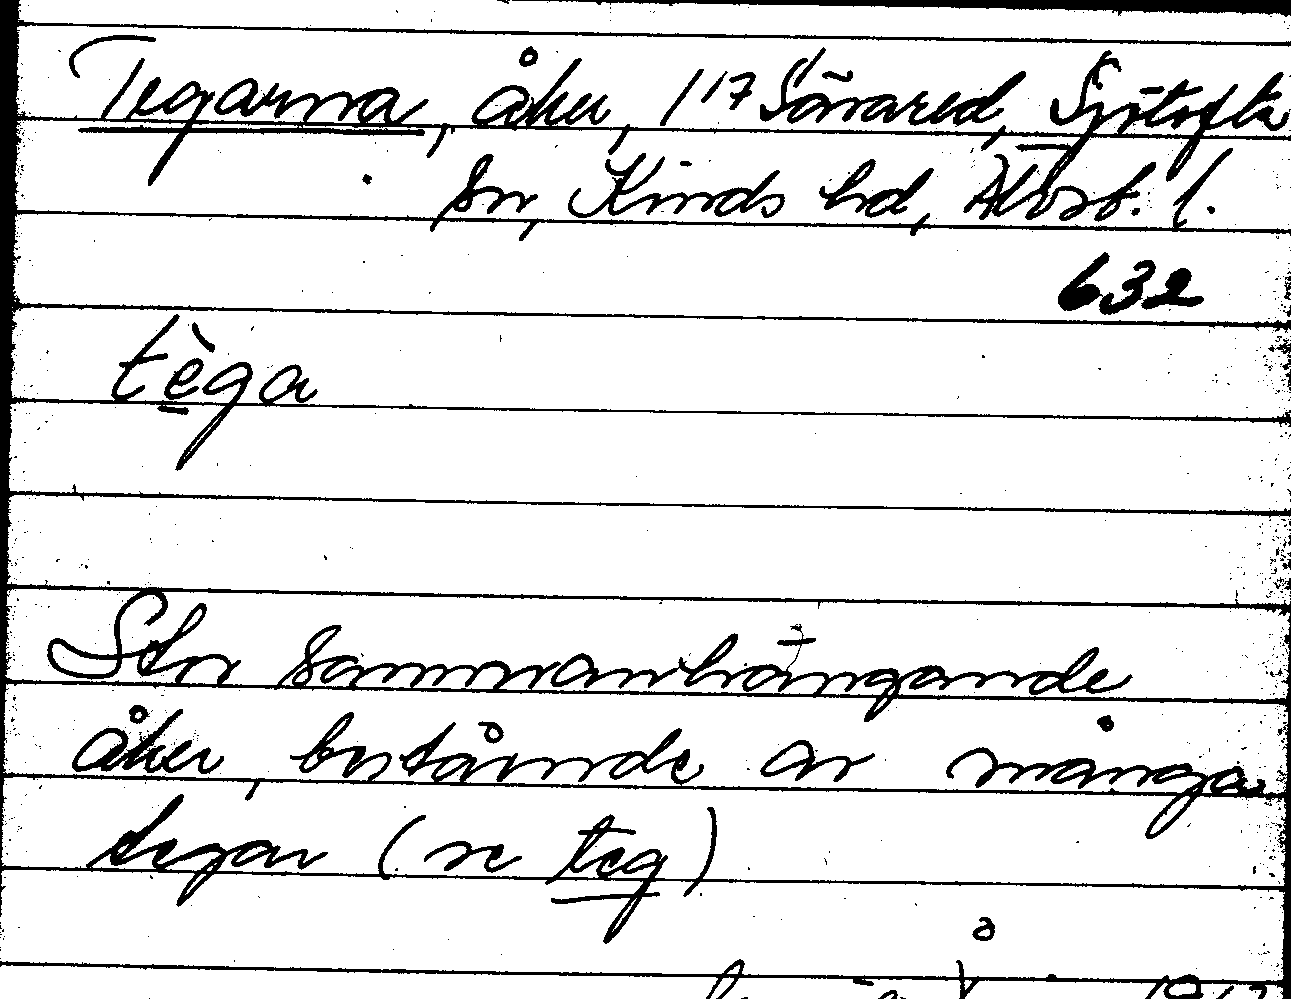 Tegarna, åker, 1/17 Sävared, Sjötofta
sn, Kinds hd, Älvsb. l.
632
tèga
Stor sammanhängande
åker, bestående av många
tegar (se teg)